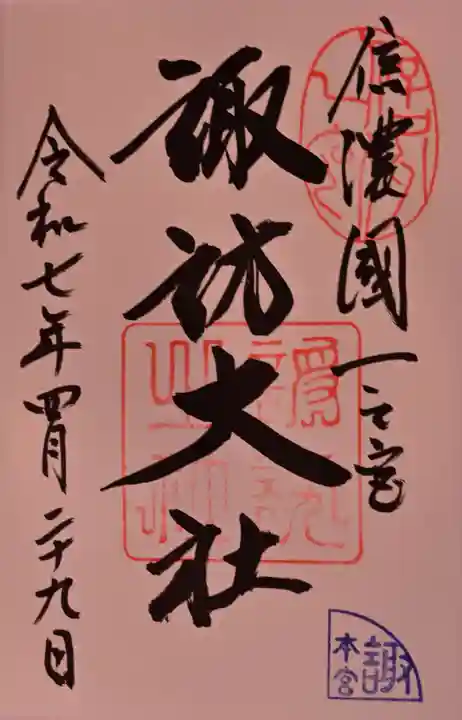 信濃國一之宮
諏訪大社
令和七年四月二十九日
諏
本宮